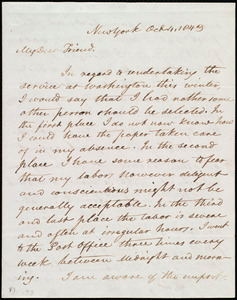 New York Oct 4, 1843
My Dear Friend.
In regard to undertaking the
service at Washington this winter,
I would say that I had rather some
other person should be selected. In
the first place I do not now know how
I could have the paper taken care
of in my absence. In the second
place I have some reason to fear
that my labor, however diligent
and conscientious might not be
generally acceptable. In the third
and last place the labor is severe
and often at irregular hours. I went
to the Post Office three times every
week between midnight and morn-
ing. I am aware of the import-